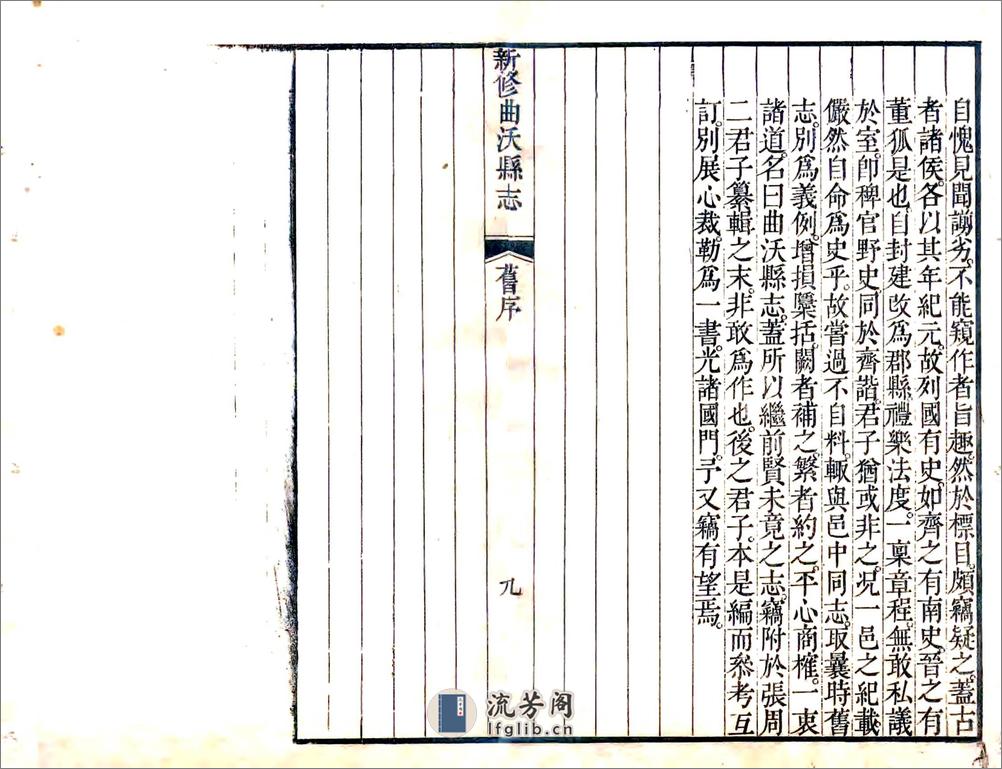 自愧見聞謭劣。不能窺作者旨趣。然於標目。頗竊疑之。蓋古
者諸侯。各以其年紀元。故列國有史。如齊之有南史。晉之有
董狐是也。自封建改爲郡縣。禮樂法度。一稟章程。無敢私議
於室。卽稗官野史。同於齊諧。君子猶或非之。况一邑之紀載
儼然自命爲史乎。故嘗過不自料。輙與邑中同志。取曩時舊
志。別爲義例。增損櫽括。闕者補之。繁者約之。平心商榷。一衷
諸道。名曰曲沃縣志。蓋所以繼前賢未竟之志。竊附於張周
二君子纂輯之末。非敢爲作也。後之君子。本是編而叅考互
訂。別展心裁。勒爲一書。光諸國門。予又竊有望焉。
新修曲沃縣志
舊序
九
流芳阁
lfglib.cn